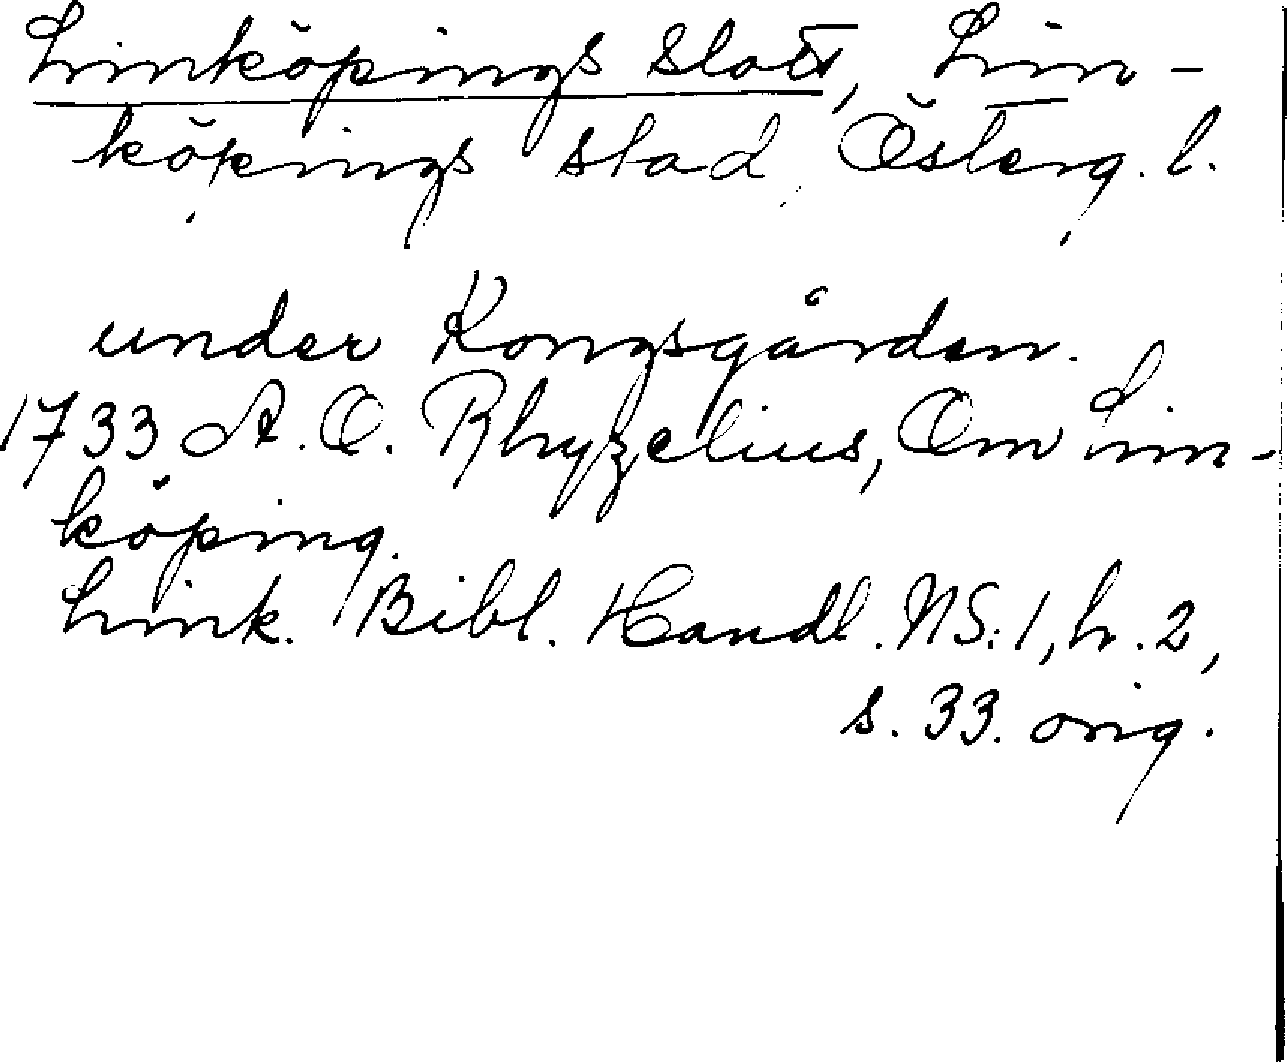 Linköpings Slott, Lin-
köpings stad, Österg. l.
under Kongsgården.
1733 A. O. Rhyzelius, Om Lin-
köping.
Link. Bibl. Handl. NS:1, h. 2,
s. 33. orig.